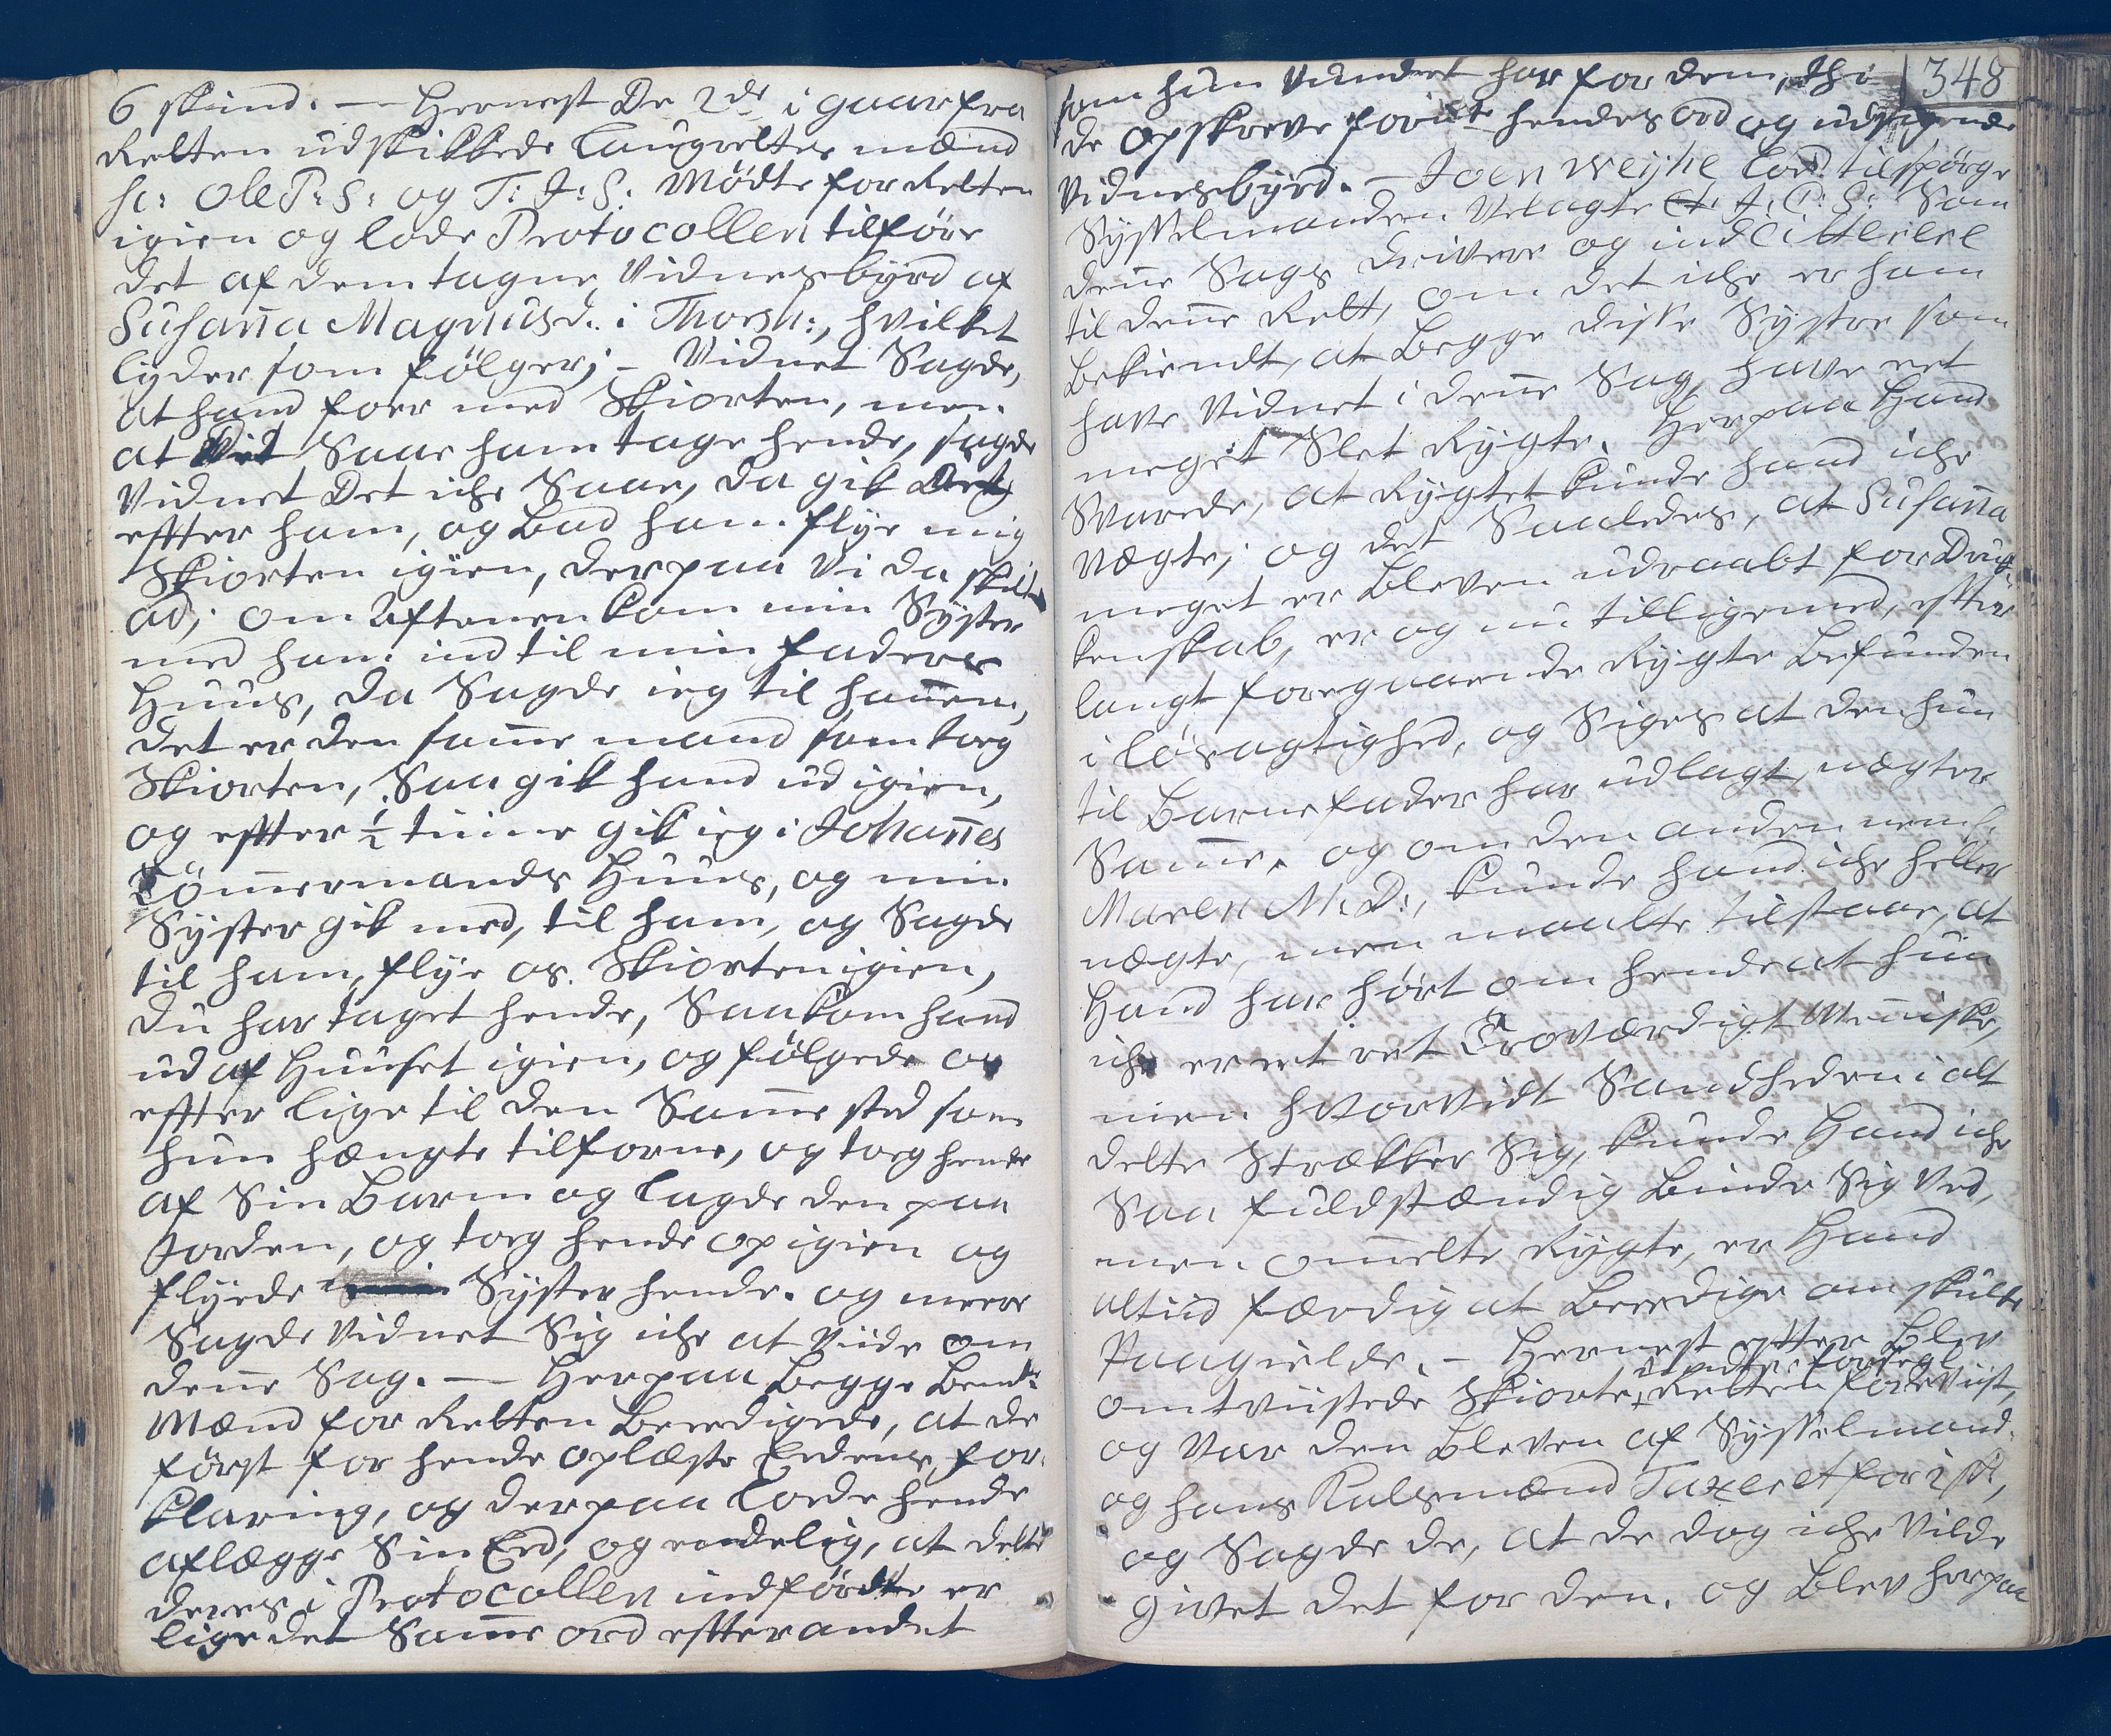 6 skind. — Hernest De 2de i gaar fra
Retten udskikkede Laugrettes mænd
sc: Ole P: S: og T: J: S: Mødte for Retten
igien og lode Protocollen tilføre
det af dem tagne Vidnesbyrd af
Susaña Magnusd. i Thorsh:, hvilket
lyder som følger; – Vidnet Sagde,
at hand foer med Skiorten, men
at Saae ham tage hende, sagde
Vidnet Det iche Saae, da gik Det
effter ham, og bad ham flye mig
Skiorten igien, derpaa Vi da skilte
ad; om Aftenen kom min Syster
med ham ind til min faders
Huus, da Sagde ieg til hañem,
det er den sam̄e mand som toeg
Skiorten, Saa gik hand ud igien,
og effter ½ tiime gik ieg i Johañes
Töm̄ermands Huus, og min
Syster gik med, til ham, og Sagde
til ham, flye os Skiorten igien,
du har taget hende, Saa kom hand
ud af Huuset igien, og følgede os
effter lige til den Sam̄e sted som
hun hængte tilforne, og toeg hende
af Sin Barm og lagde den paa
Jorden, og toeg hende op igien og
flyede Syster hende. og meere
Sagde Vidnet Sig iche at Viide om
deñe Sag. — Herpaa Begge Bemte
Mænd for Retten Beeedigede, at de
først for hende oplæste Eedens for,,
klaring, og derpaa loede hende
aflægge Sin Eed, og endelig, at dette
deres i Protocollen indførdte er
lige det Sam̄e ord effter andet
348
som hun Vundet har for dem, thi
de opskreve foruit hendes ord og udsigende
Vidnesbyrd. – Joen Weyhe lod tilspørge
Sysselmanden Velagte J. C. S: Som
deñe Sags Drivere og indCitterere
til deñe Rett, om det iche er ham
bekiendt, at Begge disse Systre som
have Vidnet i deñe Sag, have eet
meget Slet Rygte. Herpaa Hand
Svarede, at Rygtet kunde hand iche
nægte; og det Saaledes, at Susaña
meget er bleven udraabt for Druk,,
kenskab, er og nu tilligemed, effter
langt foregaaende Rygte befunden
i løsagtighed, og Siges at den hun
til Barnefader har udlagt, nægter
Sam̄e. og om den anden neml.
Maren M. D:, kunde hand iche heller
nægte, men maatte tilstaae, at
Hand har hørt om hende at hun
iche er et ret Troværdigt Meñiske,
men hvorvidt Sandheden i alt
dette Strækker Sig, kunde Hand iche
Saa fuldstændig binde Sig Ved,
men om̄elte Rygte, er Hand
altiid færdig at Beeedige om skulle
Paagielde. – Hernest effter blev
omtviistede Skiorte, Retten foreviist,
og Var den bleven af Sysselmand.
og hans Rulsmænd Taxeret for 2 sk,
og Sagde de, at de dog iche Vilde
givet det for den. og blev herpaa